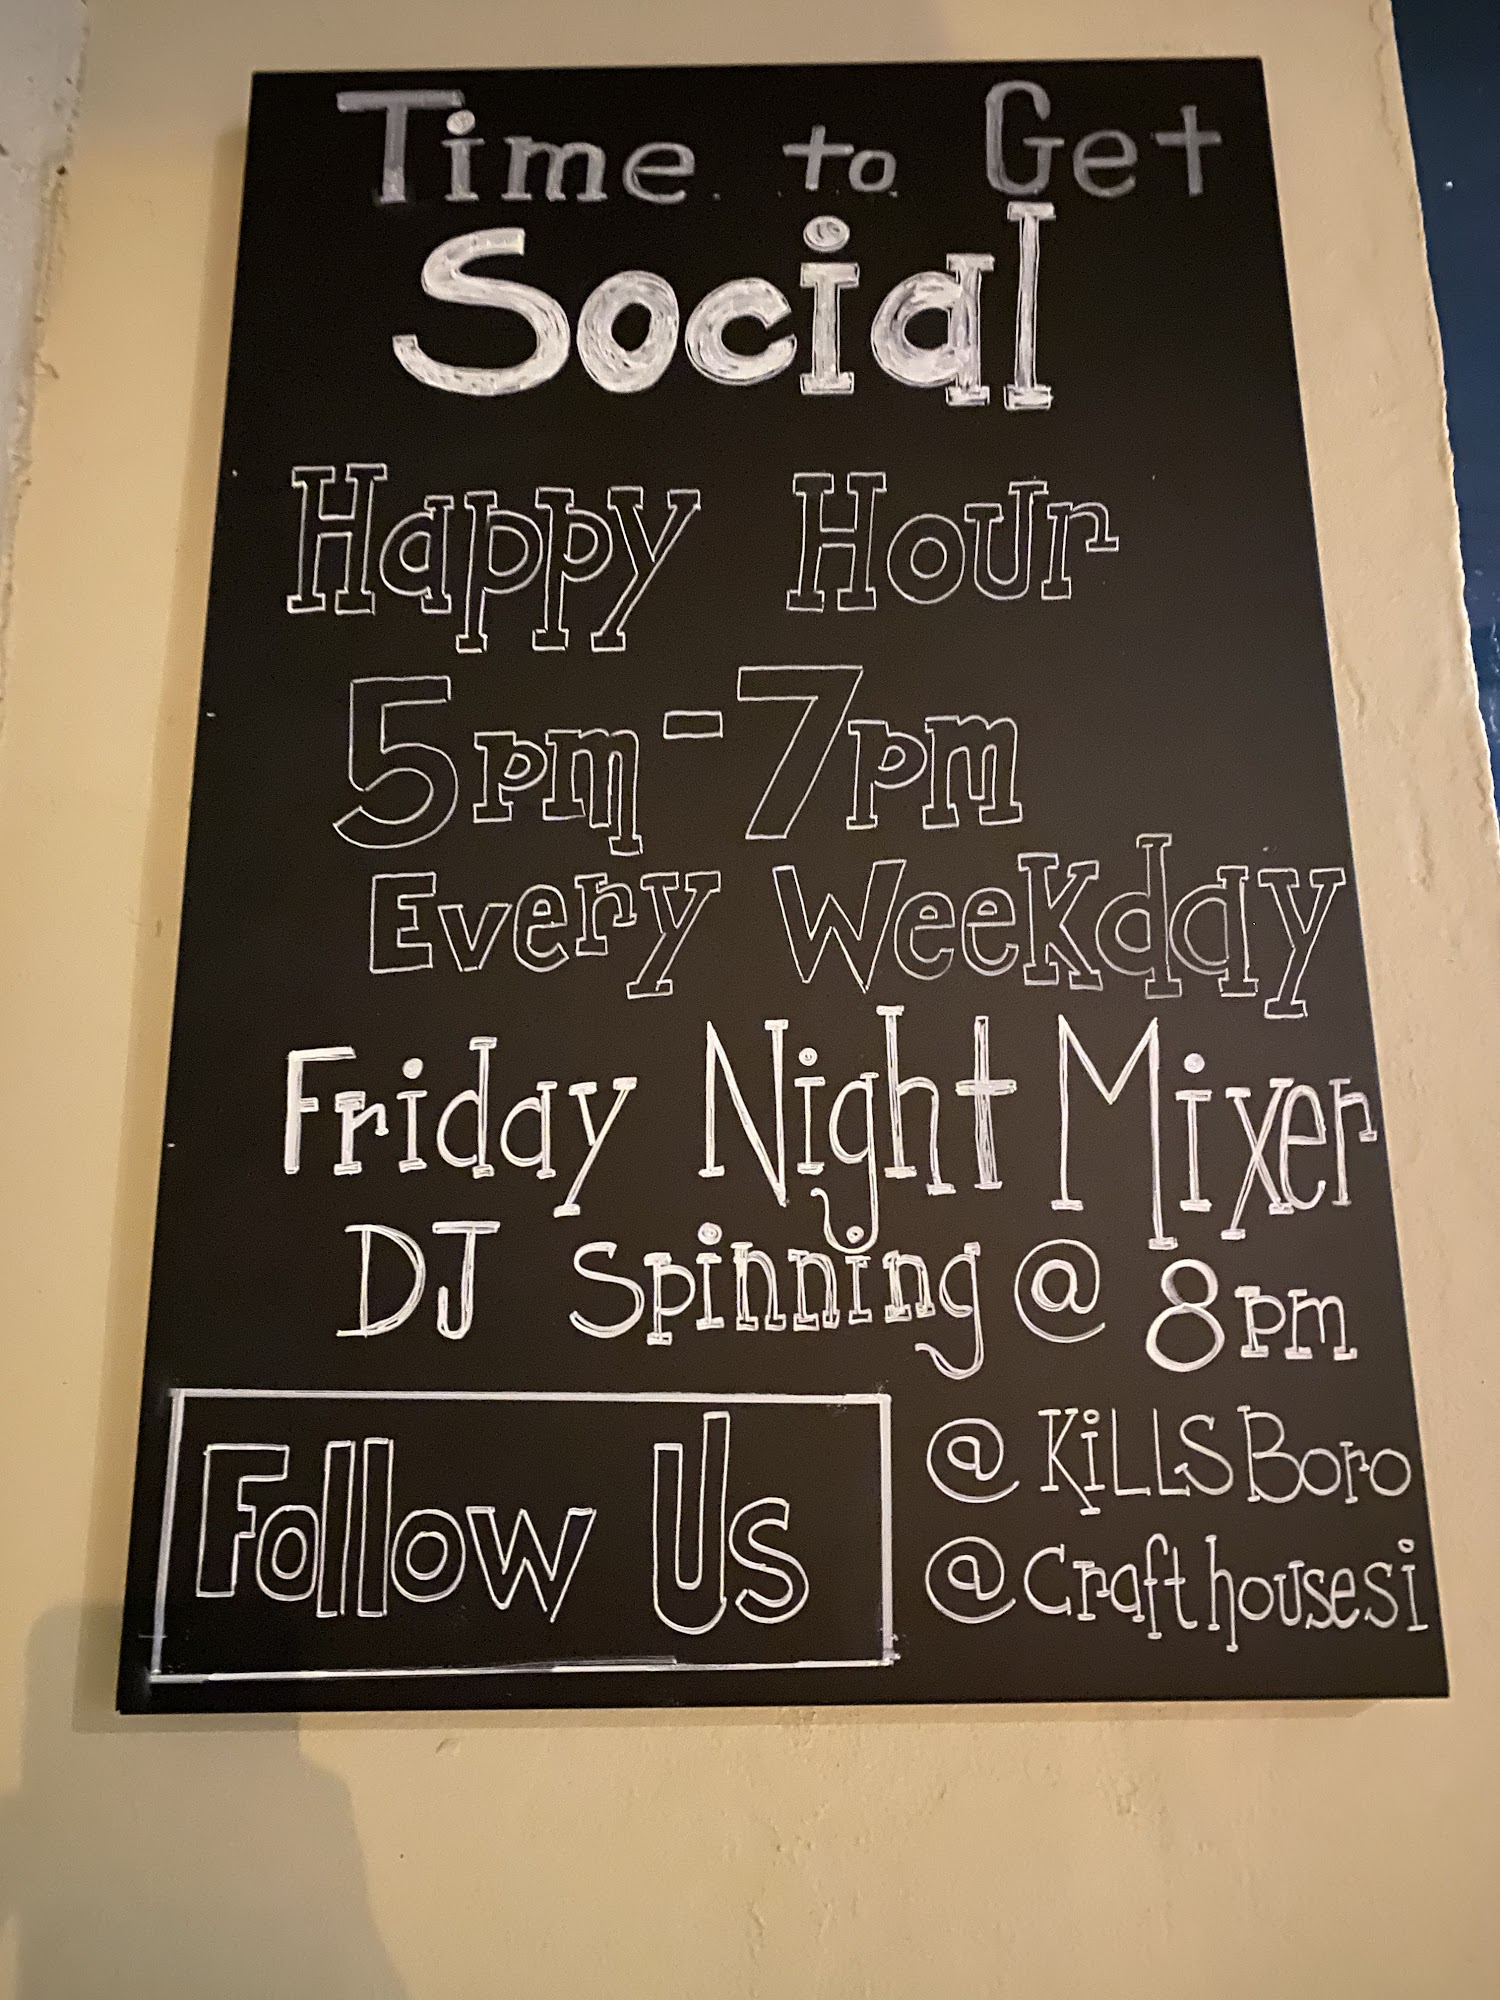 Time to Get
Social
Happy Hour
5pm-7pm
Every Weekday
Friday Night Mixer
DJ Spinning @ 8pm
Follow Us
@KiLLSBoro
@Crafthousesi